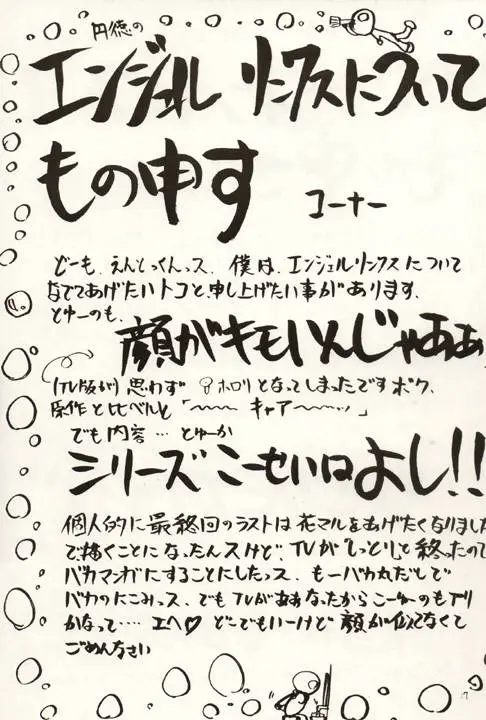 円徳の
エンジェルリンクスについて
もの申す
コーナー
どーも、えんとっくんっス、僕は、エンジェルリンクスについて
なでてあげたいトコと、申し上げたい事があります、
とゆーのも、
顔がキモいんじゃあぁ
(TV版が) 思わず ホロリとなってしまったですボク、
原作と比べると「〜〜〜 キャア〜〜〜ッ」
でも内容… とゆーか
シリーズこーせいはよし!!
個人的に最終回のラストは花マルをあげたくなりました
で描くことになったんスけど、TVが「しっとり」と終ったので
バカマンガにすることにしたっス、もーバカ丸だしで
バカのにこみっス、でもTVがああなったからこーゆーのもアリ
かなって…. エヘ♡ どーでもいーけど 顔が似てなくて
ごめんなさい